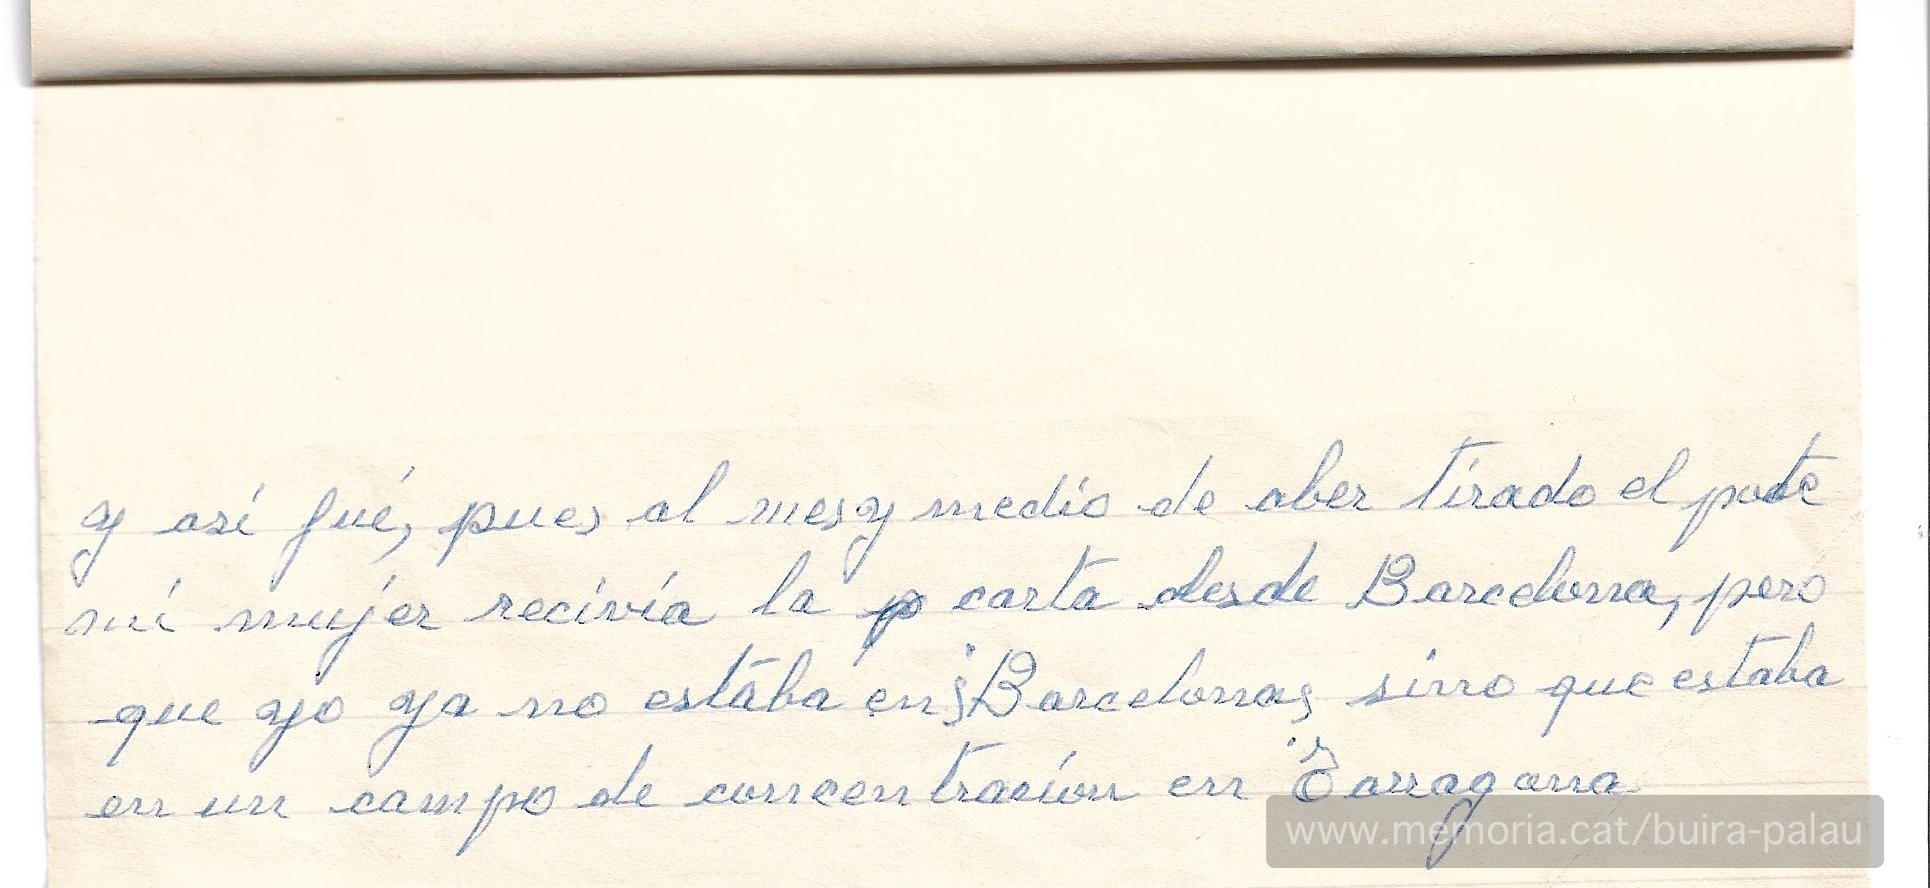 y asi fué, pues al mes y medio de aber tirado el pote
mi mujer recivía la p carta desde Barcelona, pero
que yo ya no estaba en Barcelona, sinno que estaba
en un campo de concentración en Tarragona
www.memoria.cat/buira-palau